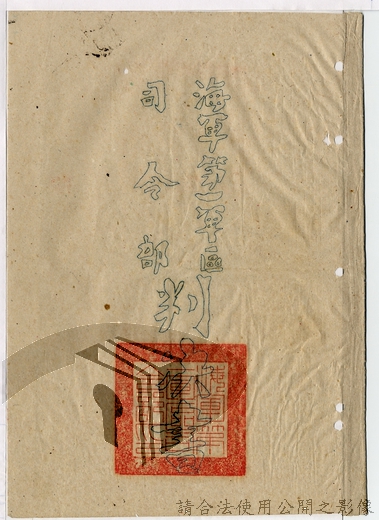 海軍第一軍區
司令部判決書
請合法使用公開之影像